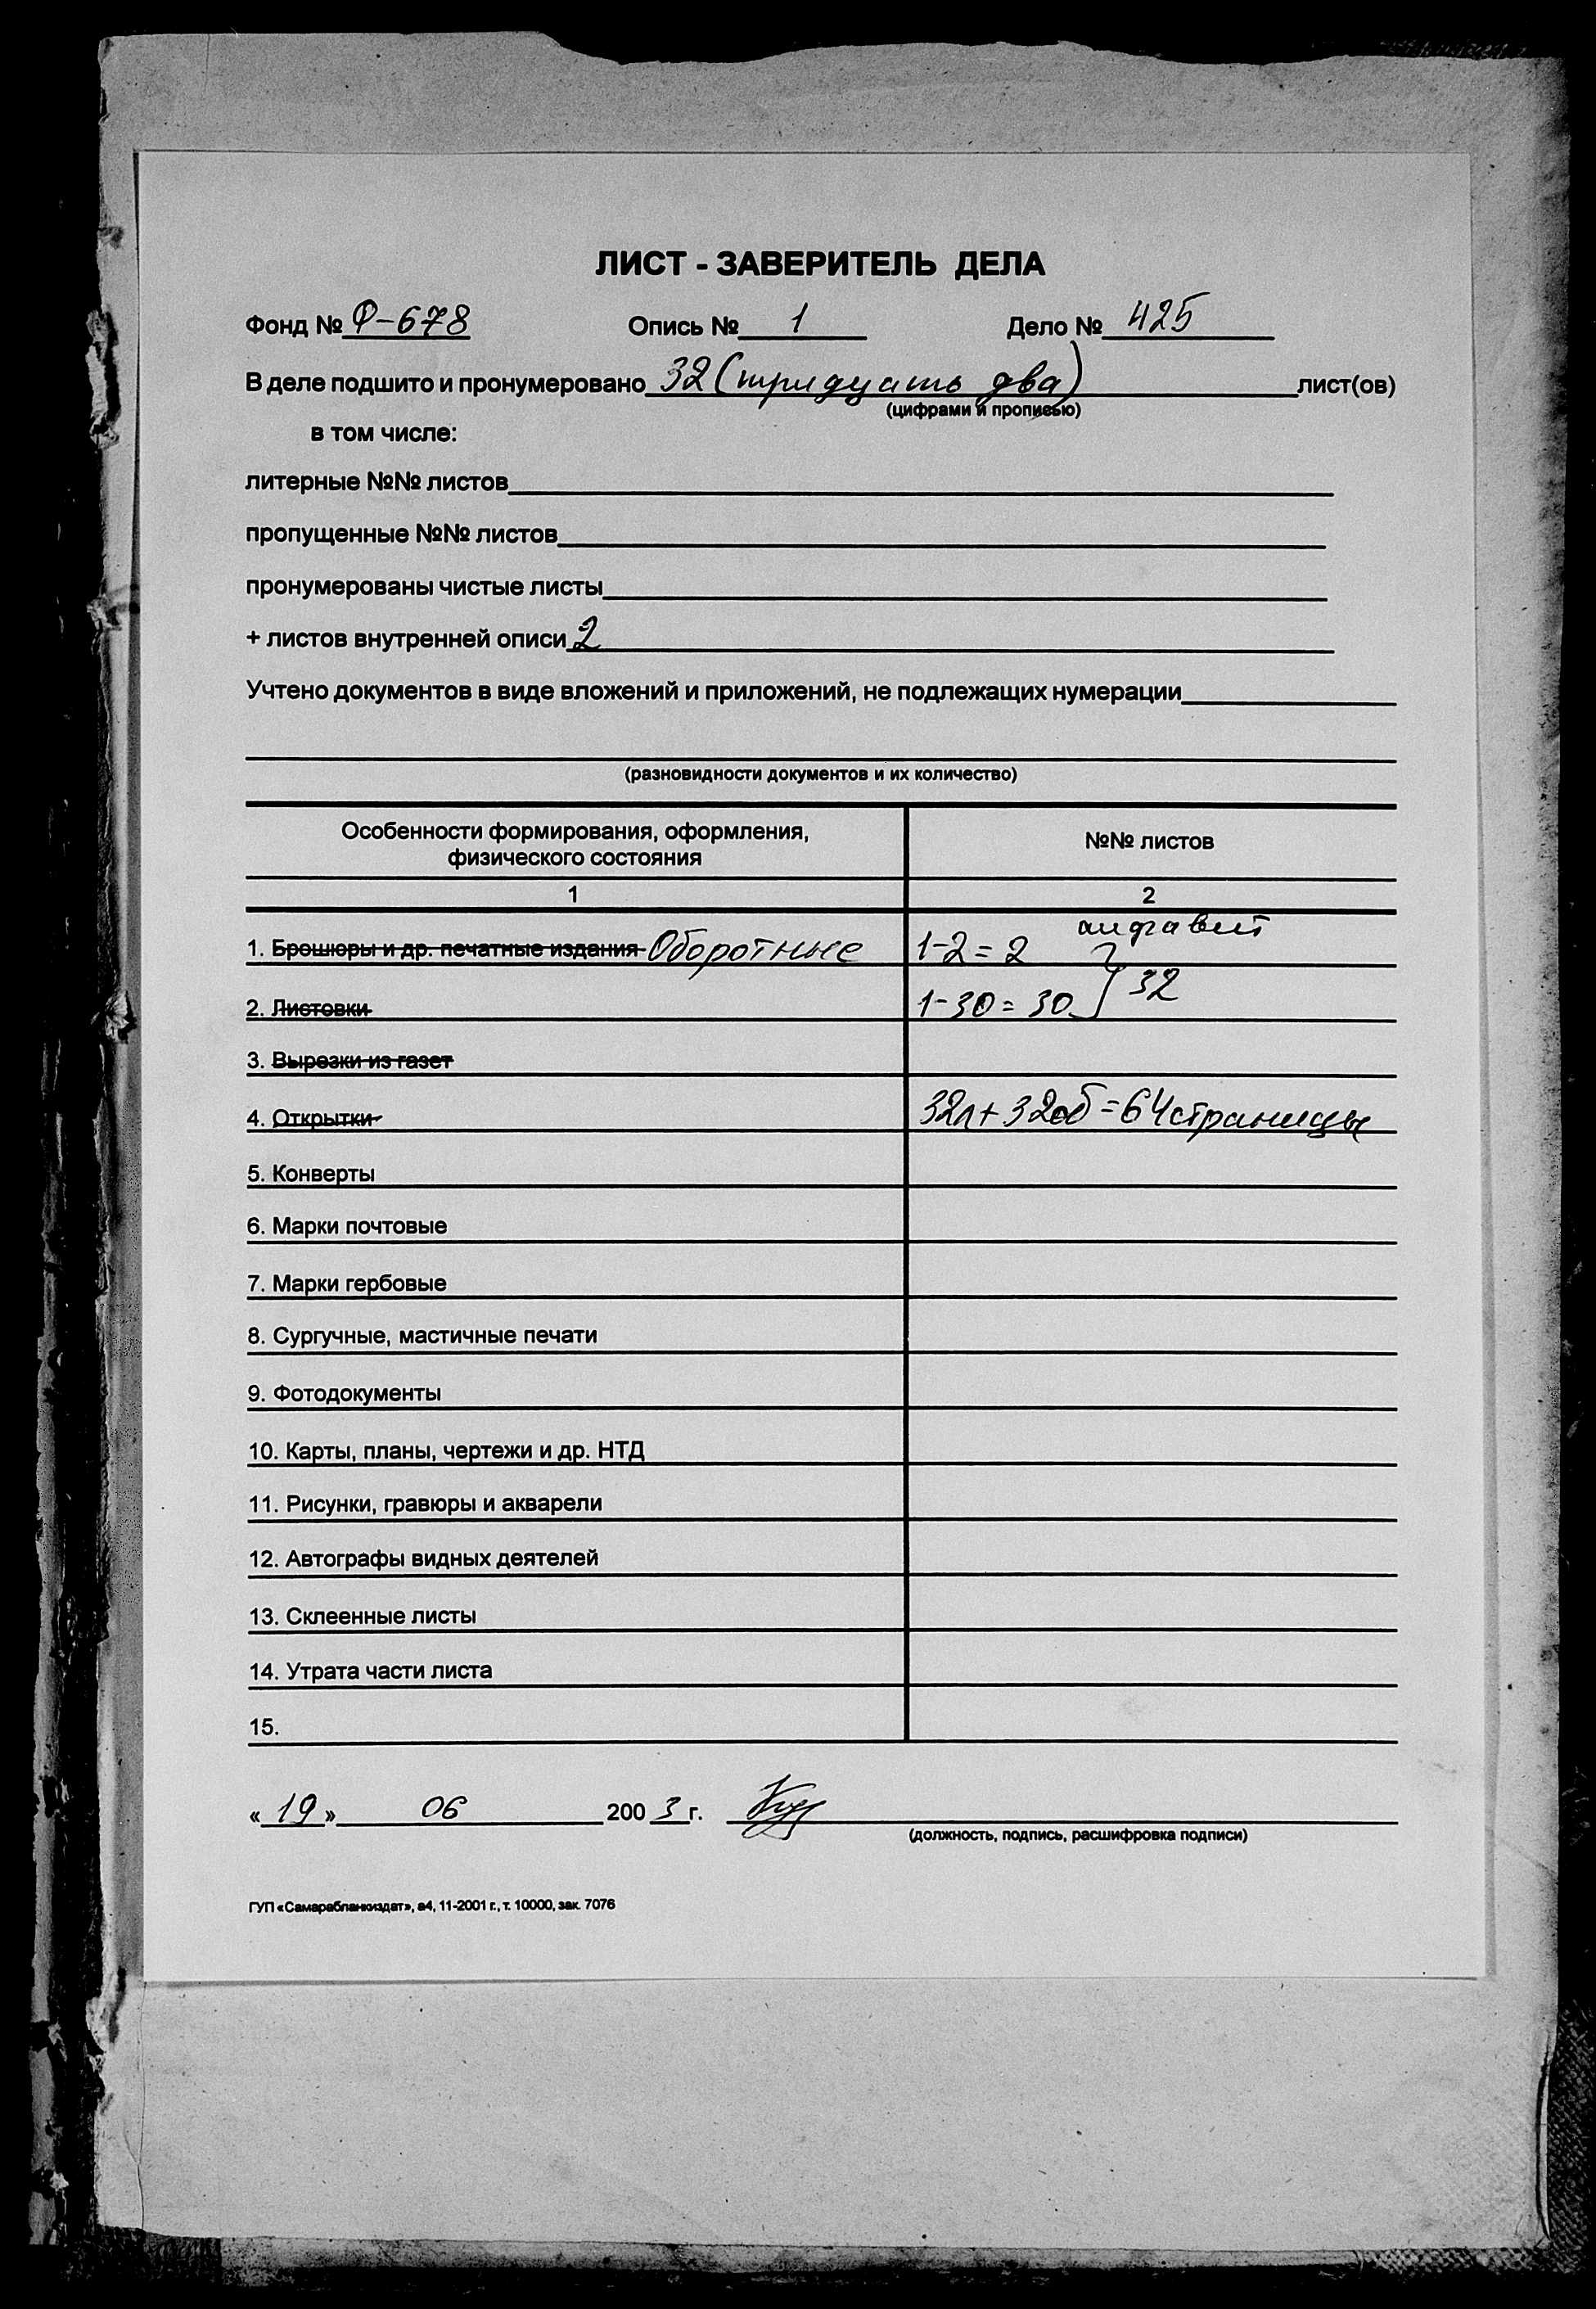 ЛИСТ - ЗАВЕРИТЕЛЬ ДЕЛА
Фонд № Ф-678 Опись № 1 Дело № 425
В деле подшито и пронумеровано 32 (тридцать два) лист(ов)
(цифрами и прописью)
в том числе:
литерные №№ листов
пропущенные №№ листов
пронумерованы чистые листы
+ листов внутренней описи 2
Учтено документов в виде вложений и приложений, не подлежащих нумерации
(разновидности документов и их количество)
Особенности формирования, оформления, физического состояния
№№ листов
1 2
алфавит
1. Брошюры и др. печатные издания Оборотные 1-2 = 2
2. Листовки 1-30 = 30 } 32
3. Вырезки из газет
4. Открытки 32л + 32об = 64 страницы
5. Конверты
6. Марки почтовые
7. Марки гербовые
8. Сургучные, мастичные печати
9. Фотодокументы
10. Карты, планы, чертежи и др. НТД
11. Рисунки, гравюры и акварели
12. Автографы видных деятелей
13. Склеенные листы
14. Утрата части листа
15.
« 19 » 06 2003 г.
(должность, подпись, расшифровка подписи)
ГУП «Самарабланкиздат», а4, 11-2001 г., т. 10000, зак. 7076